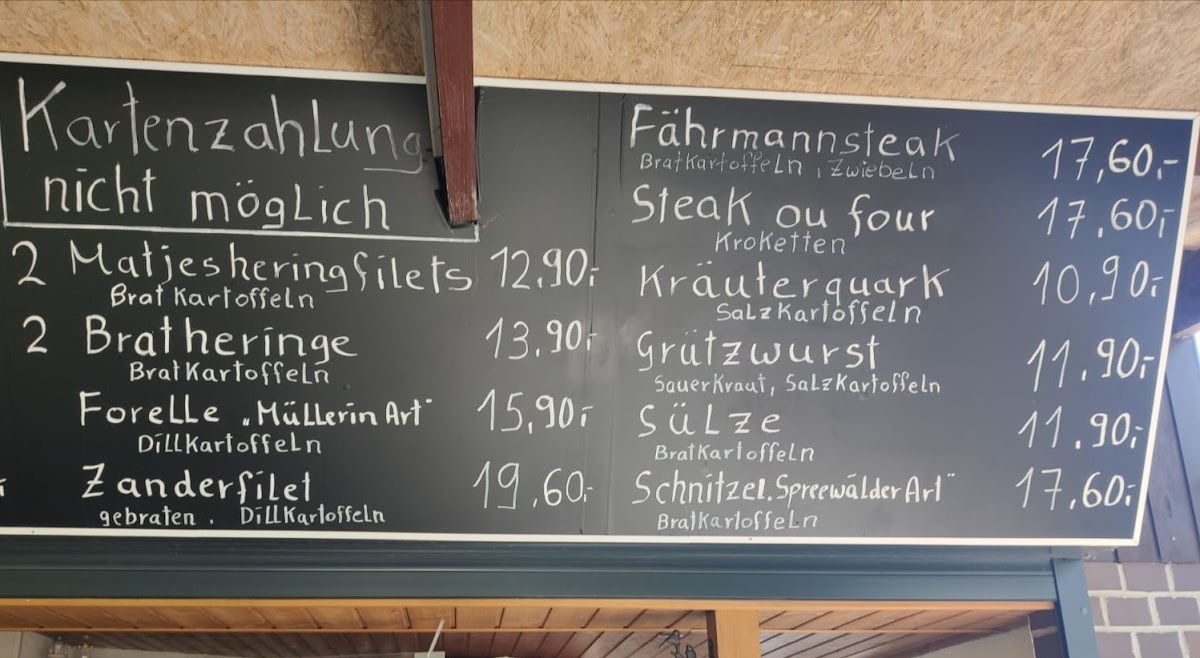 Kartenzahlung
nicht möglich
2 Matjesheringfilets 12,90,-
Bratkartoffeln
2 Bratheringe 13,90,-
Bratkartoffeln
Forelle „Müllerin Art" 15,90,-
Dillkartoffeln
Zanderfilet 19,60,-
gebraten. Dillkartoffeln
Fährmannsteak 17,60,-
Bratkartoffeln, Zwiebeln
Steak ou four 17,60,-
Kroketten
Kräuterquark 10,90,-
Salzkartoffeln
Grützwurst 11,90,-
Sauerkraut, Salzkartoffeln
Sülze 11,90,-
Bratkartoffeln
Schnitzel „Spreewälder Art" 17,60,-
Bratkartoffeln